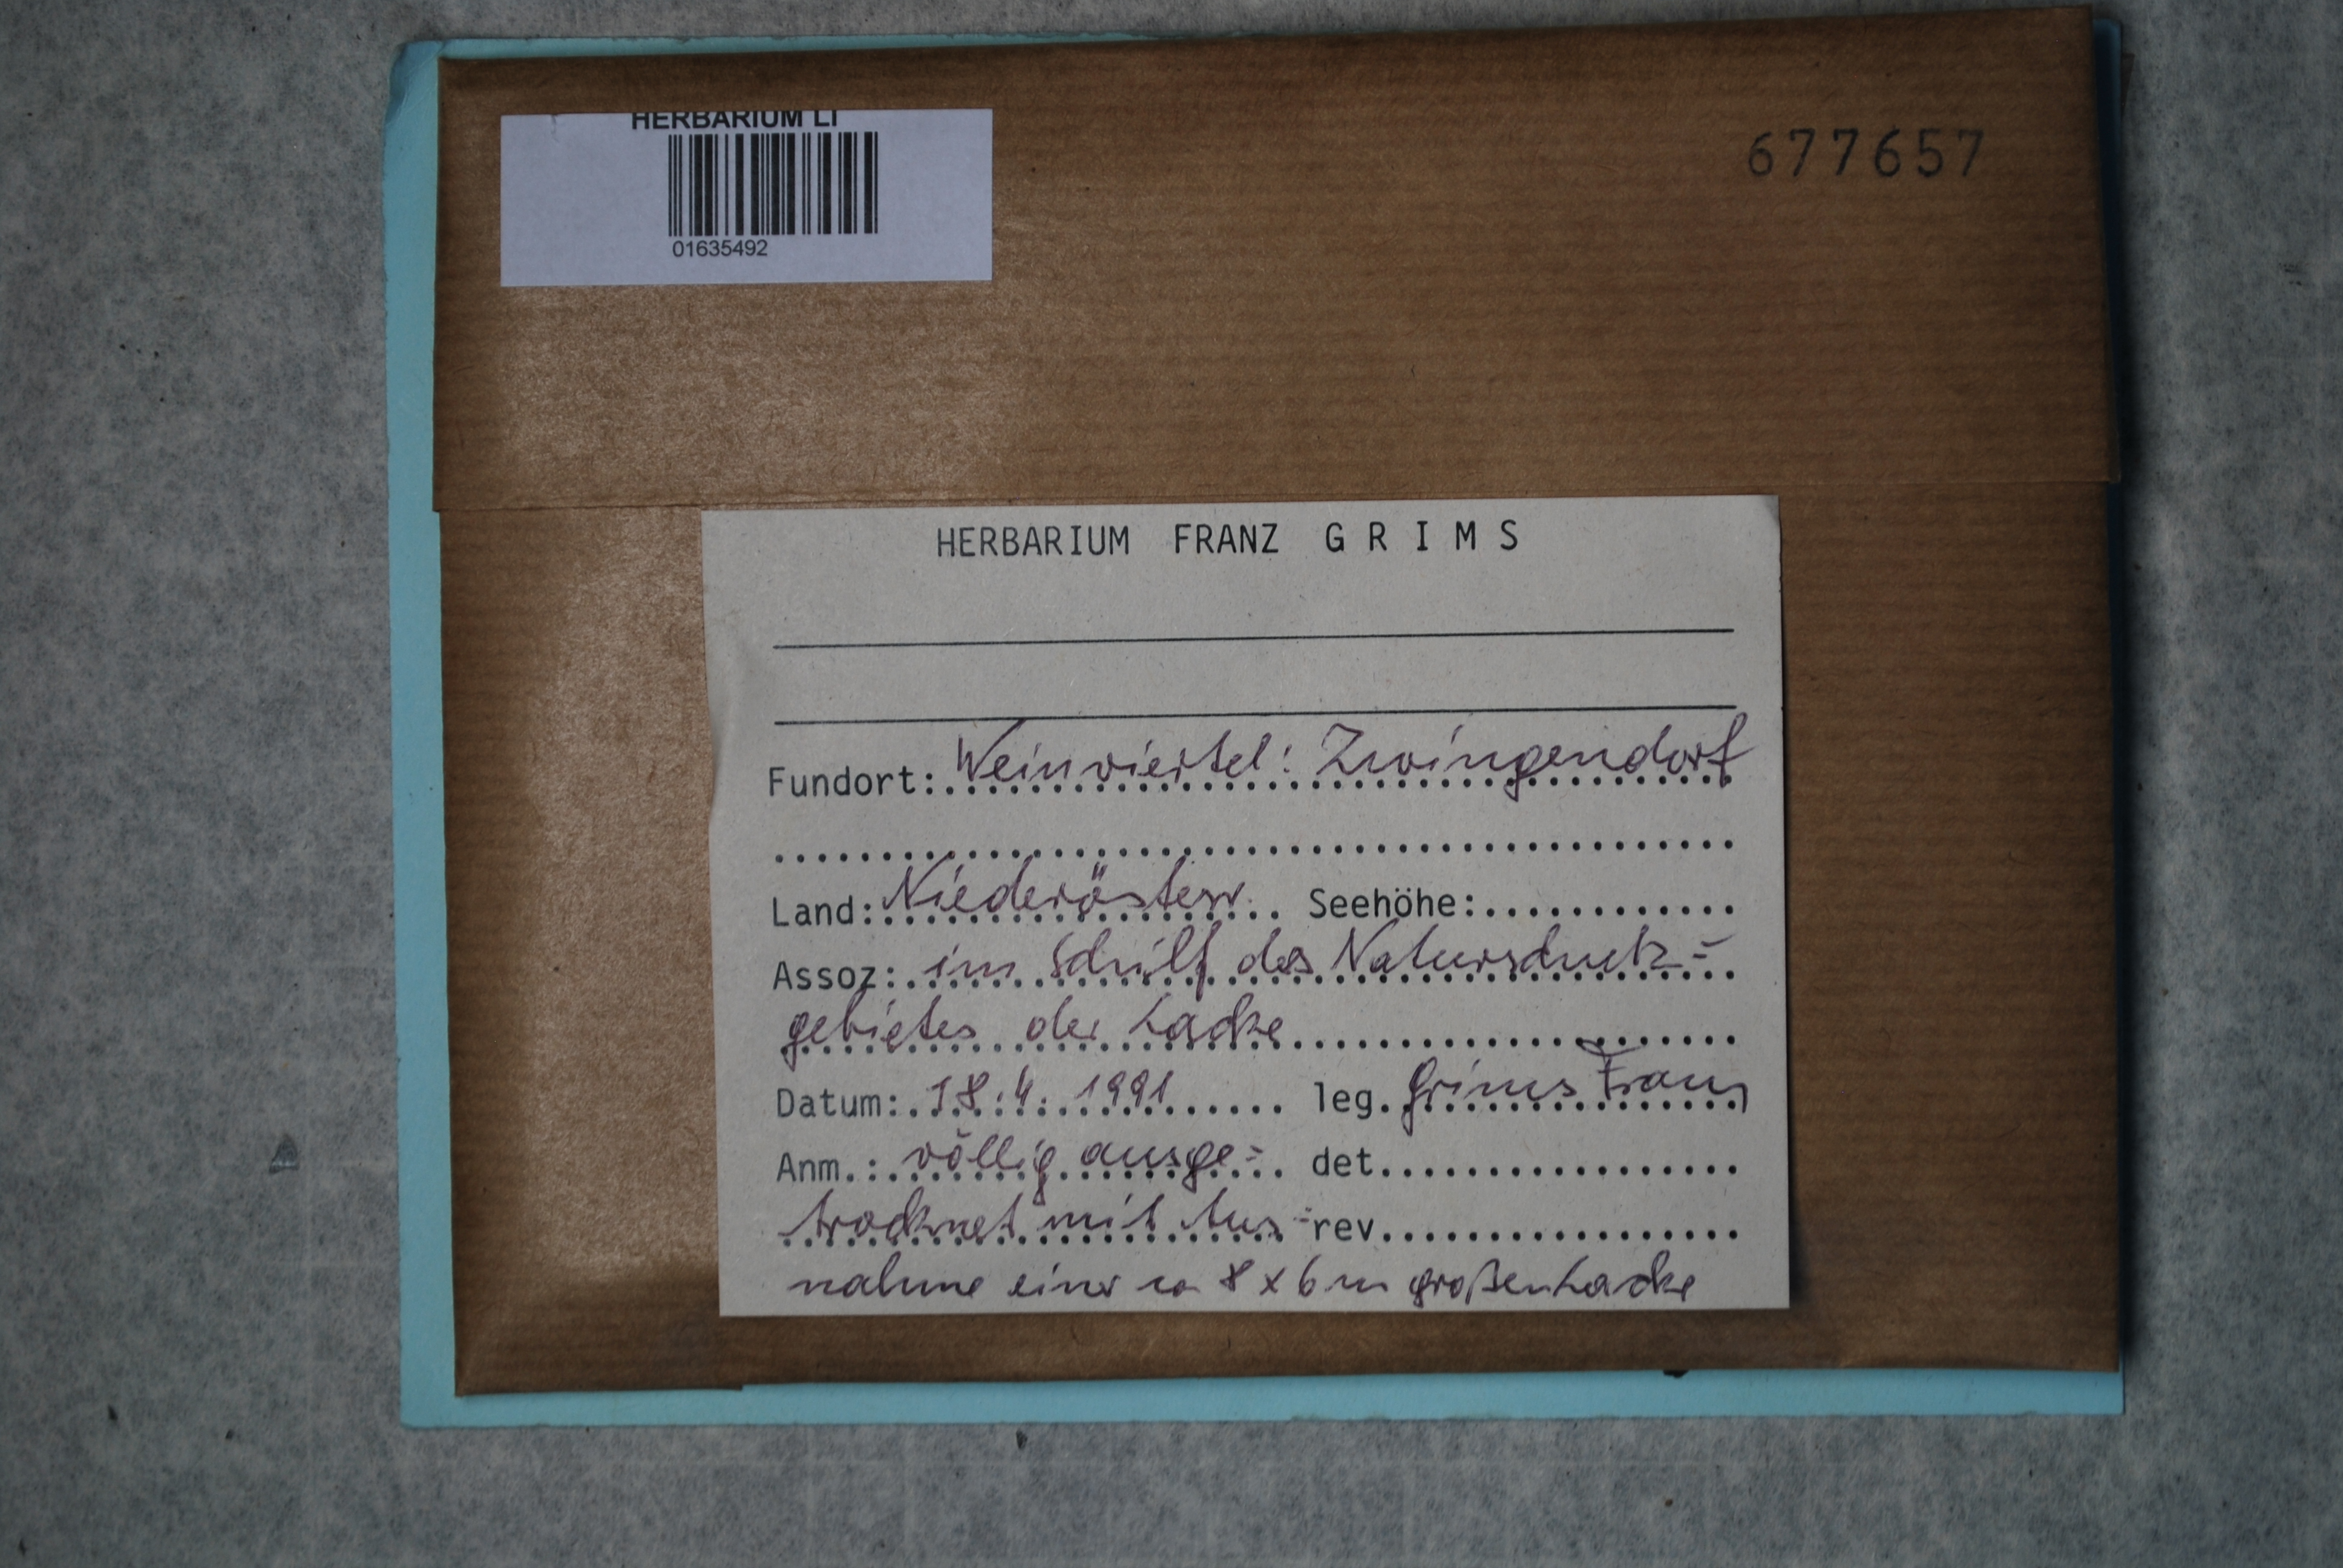 HERBARIUM LI
01635492
677657
HERBARIUM FRANZ GRIMS
Fundort: Weinviertel: Zwingendorf
Land: Niederösterr. Seehöhe:
Assoz: im Schilf des Naturschutz=
gebietes der Lacke
Datum: 18.4.1991 leg. Grims Franz
Anm.: völlig ausge= det
trocknet mit Aus= rev
nahme einer ca 8 x 6 m großen Lacke